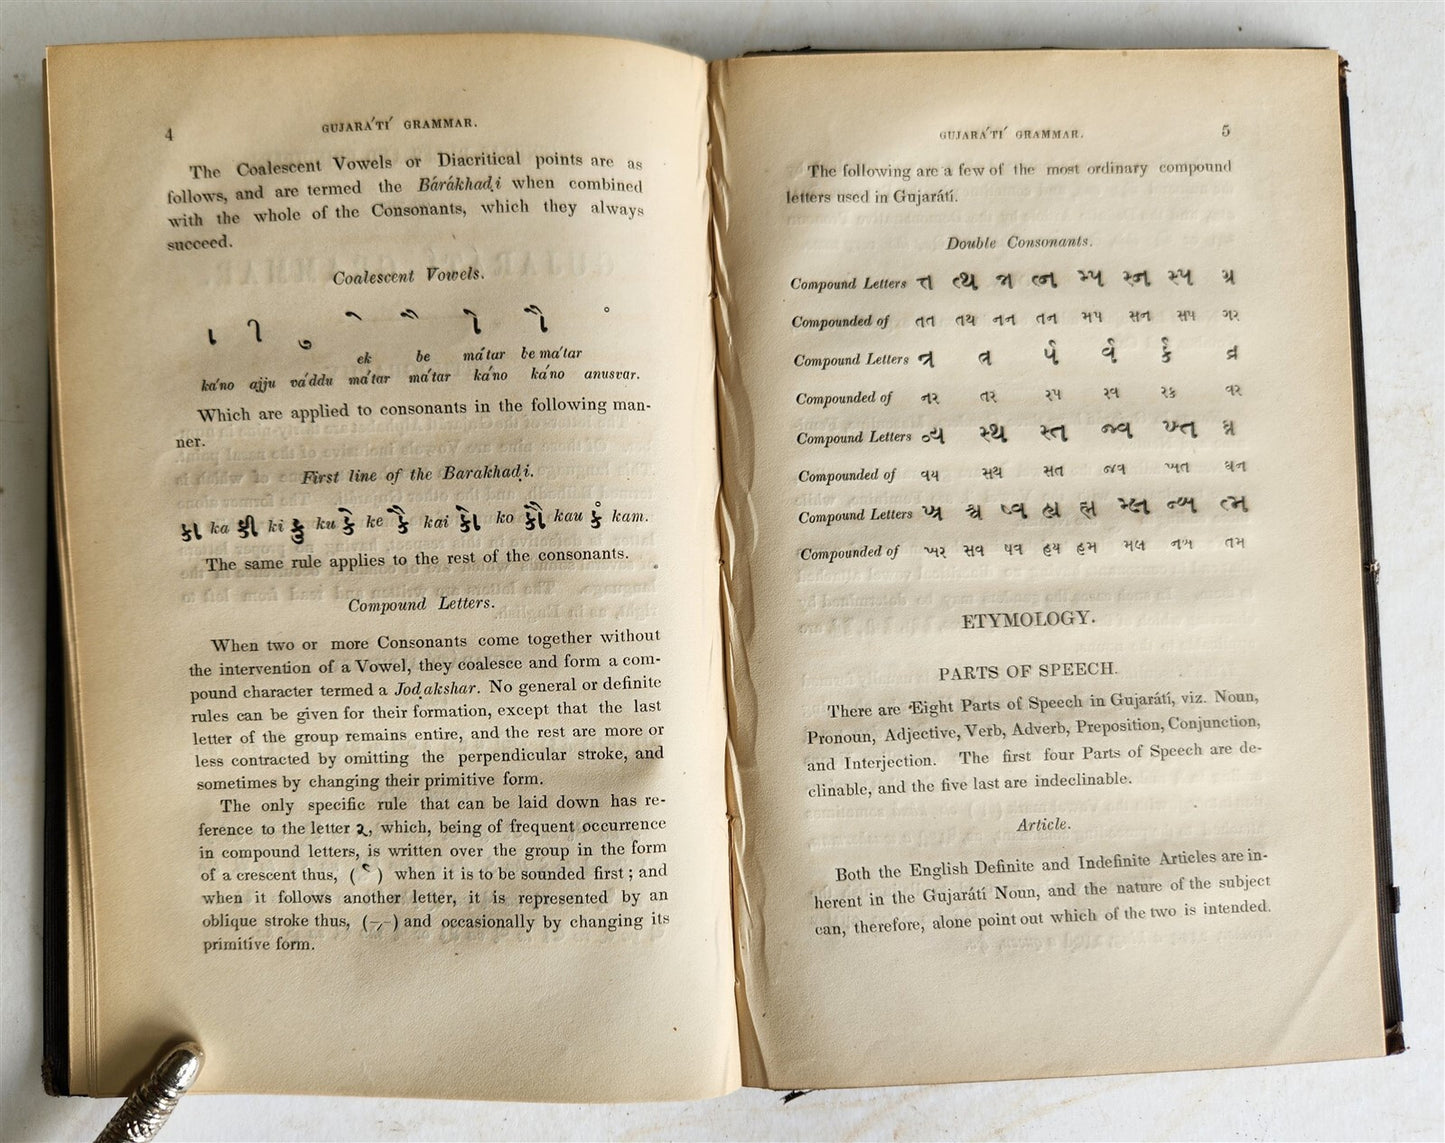 4
GUJARA´TI´ GRAMMAR.
The Coalescent Vowels or Diacritical points are as
follows, and are termed the Bárákhaḍi when combined
with the whole of the Consonants, which they always
succeed.
Coalescent Vowels.
ek be ma´tar be ma´tar
ka´no ajju va´ddu ma´tar ma´tar ka´no ka´no anusvar.
Which are applied to consonants in the following man-
ner.
First line of the Barakhaḍi.
કા ka કી ki કુ ku કે ke કૈ kai કો ko કૌ kau કં kam.
The same rule applies to the rest of the consonants.
Compound Letters.
When two or more Consonants come together without
the intervention of a Vowel, they coalesce and form a com-
pound character termed a Joḍakshar. No general or definite
rules can be given for their formation, except that the last
letter of the group remains entire, and the rest are more or
less contracted by omitting the perpendicular stroke, and
sometimes by changing their primitive form.
The only specific rule that can be laid down has re-
ference to the letter ર, which, being of frequent occurrence
in compound letters, is written over the group in the form
of a crescent thus, ( ) when it is to be sounded first; and
when it follows another letter, it is represented by an
oblique stroke thus, ( ) and occasionally by changing its
primitive form.
GUJARA´TI´ GRAMMAR.
5
The following are a few of the most ordinary compound
letters used in Gujarátí.
Double Consonants.
Compound Letters ત્ત ત્થ ત્ન મ્પ સ્ન સ્પ ગ્ર
Compounded of તત તથ નન તન મપ સન સપ ગર
Compound Letters ન્ર ત્ર ર્પ ર્વ ર્ક વ્ર
Compounded of નર તર રપ રવ રક વર
Compound Letters વ્ય સ્થ સ્ત જ્વ ખ્ત
Compounded of વય સથ સત જવ ખત ઘન
Compound Letters ખ્ર શ્વ ષ્વ હ્ય હ્મ મ્લ ત્મ
Compounded of ખર સવ પવ હય હમ મલ તમ
ETYMOLOGY.
PARTS OF SPEECH.
There are Eight Parts of Speech in Gujarátí, viz. Noun,
Pronoun, Adjective, Verb, Adverb, Preposition, Conjunction,
and Interjection. The first four Parts of Speech are de-
clinable, and the five last are indeclinable.
Article.
Both the English Definite and Indefinite Articles are in-
herent in the Gujarátí Noun, and the nature of the subject
can, therefore, alone point out which of the two is intended.